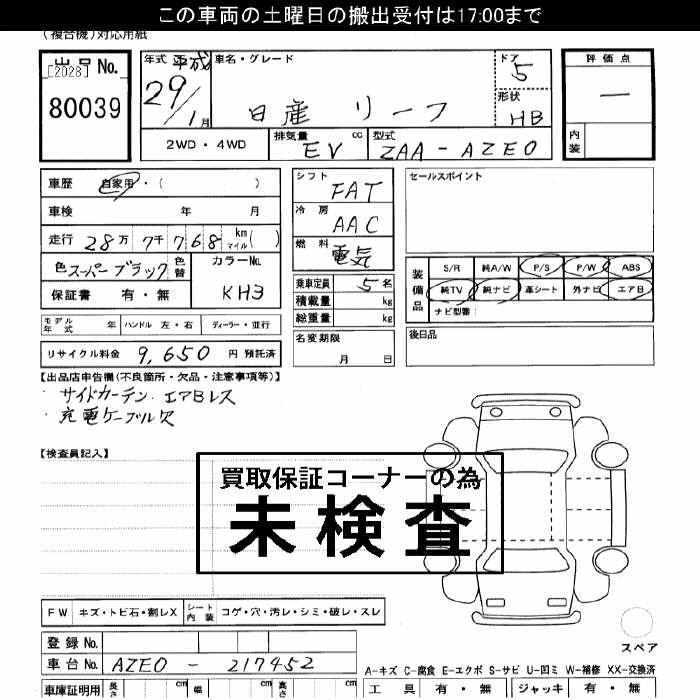 この車両の土曜日の搬出受付は17:00まで
(複合機)対応用紙
出品No.
[2028]
80039
年式 平成 29/1月
車名・グレード
日産 リーフ
ドア 5
形状 HB
評価点
—
内装
2WD・4WD
排気量 EV cc
型式 ZAA-AZE0
車歴 自家用・( )
車検 年 月
走行 28万7千768 km マイル( )
色 スーパーブラック 色替
カラーNo. KH3
保証書 有・無
モデル年式 年 ハンドル 左・右 ディーラー・並行
リサイクル料金 9,650 円 預託済
シフト FAT
冷房 AAC
燃料 電気
乗車定員 5名
積載量 kg
総重量 kg
名変期限 月 日
セールスポイント
装備品
S/R 純A/W P/S P/W ABS
純TV 純ナビ 革シート 外ナビ エアB
ナビ型番:
後日品
【出品店申告欄(不良箇所・欠品・注意事項等)】
・サイドカーテン.エアBレス
・充電ケーブル欠
【検査員記入】
買取保証コーナーの為
未検査
FW キズ・トビ石・割レX シート内装 コゲ・穴・汚レ・シミ・破レ・スレ
登録No.
車台No. AZE0 - 217452
車庫証明用 長さ cm 幅 cm 高さ cm
スペア
A-キズ C-腐食 E-エクボ S-サビ U-凹ミ W-補修 XX-交換済
工具 有・無 ジャッキ 有・無